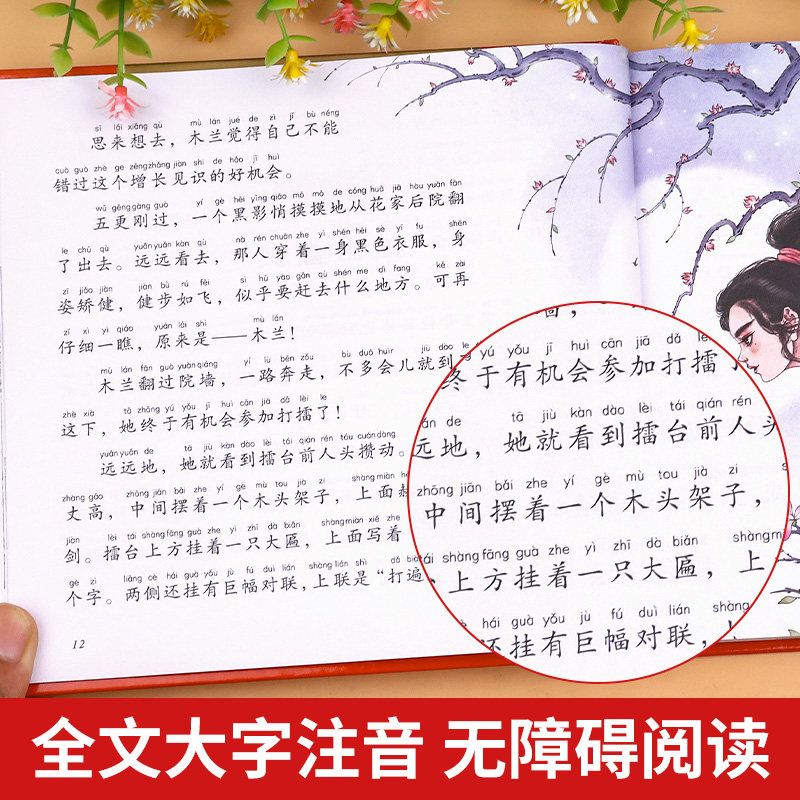 sī lái xiǎng qù mù lán jué de zì jǐ bù néng
思来想去，木兰觉得自己不能
cuò guò zhè ge zēng zhǎng jiàn shi de hǎo jī huì
错过这个增长见识的好机会。
wǔ gēng gāng guò yí gè hēi yǐng qiāo mō mō de cóng huā jiā hòu yuàn fān
五更刚过，一个黑影悄摸摸地从花家后院翻
le chū qù yuǎn yuǎn kàn qù nà rén chuān zhe yì shēn hēi sè yī fu shēn
了出去。远远看去，那人穿着一身黑色衣服，身
zī jiǎo jiàn jiàn bù rú fēi sì hū yào gǎn qù shén me dì fang kě zài
姿矫健，健步如飞，似乎要赶去什么地方。可再
zǐ xì yì qiáo yuán lái shì mù lán
仔细一瞧，原来是——木兰！
mù lán fān guò yuàn qiáng yí lù bēn zǒu bù duō huìr jiù dào le
木兰翻过院墙，一路奔走，不多会儿就到了
zhè xià tā zhōng yú yǒu jī huì cān jiā dǎ lèi le
这下，她终于有机会参加打擂了！
yuǎn yuǎn de tā jiù kàn dào lèi tái qián rén tóu cuán dòng
远远地，她就看到擂台前人头攒动。
zhàng gāo zhōng jiān bǎi zhe yí gè mù tou jià zi shàng miàn
丈高，中间摆着一个木头架子，上面
jiàn lèi tái shàng fāng guà zhe yì zhī dà biǎn shàng miàn xiě zhe
剑。擂台上方挂着一只大匾，上面写着
gè zì liǎng cè hái guà yǒu jù fú duì lián shàng lián shì dǎ biàn
个字。两侧还挂有巨幅对联，上联是“打遍
12
yú yǒu jī huì cān jiā dǎ lèi
终于有机会参加打擂了
de tā jiù kàn dào lèi tái qián rén
远地，她就看到擂台前人头
zhōng jiān bǎi zhe yí gè mù tou jià zi
中间摆着一个木头架子，
tái shàng fāng guà zhe yì zhī dà biǎn shàng
上方挂着一只大匾，上
hái guà yǒu jù fú duì lián shàng
还挂有巨幅对联，上
全文大字注音 无障碍阅读